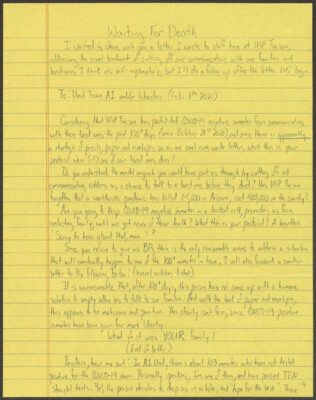 Waiting For Death
I wanted to share with you a letter I wrote to staff here at USP Tucson,
addressing the cruel treatment of cutting off our communications with our families and
loved ones. I think it's self-explanatory, but I'll do a follow up after the letter. Let's begin.
To: Unit Team A1 and/or Warden (Feb. 8th 2021)
Considering that USP Tucson has prohibited COVID-19 negative inmates from communicating
with their loved ones the past 100+ days (since October 2020) and since there is apparently
a shortage of pencils, paper and envelopes so as we can't even write letters, what then is your
protocol when (if) one of our loved ones dies?
Do you understand the mental anguish you would have put us through by cutting off all
communication, robbing us a chance to talk to a loved one before they died? Has USP Tucson
forgotten that a worldwide pandemic has killed in Arizona, and in the country?
Are you going to keep COVID-19 negative inmates in a locked cell, preventing us from
contacting family, until we get news of their death? What then is your protocol? A heartless
"Sorry to hear about that, man"?
Since you refuse to give us BP's, this is the only reasonable venue to address a situation
that will eventually happen to one of the 100+ inmates in here. I will also forward a similar
letter to the following parties:
It is unreasonable that, after 100+ days, this prison has not come up with a humane
solution to simply allow us to talk to our families. And with the lack of paper and envelopes,
this appears to be malicious and punitive. This clearly isn't fair, since COVID-19 positive
inmates have been given far more liberty.
What if it was YOUR family?
(End of letter)
Readers, hear me out. In A1 Unit, there's about 103 inmates who have not tested
positive for the COVID-19 virus. Personally speaking, I am one of them, and have passed TEN
straight tests. Yet, the prison decides to keep us in a hole, and "hope for the best". There